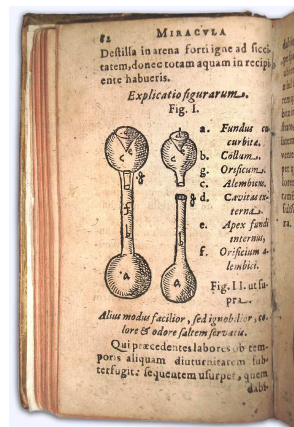 82 MIRACVLA
Destilla in arena forti igne ad sicci-
tatem, donec totam aquam in recipi-
ente habueris.
Explicatio figurarum.
Fig. I.
a. Fundus cu
curbitæ.
b. Collum.
g. Orificum.
c. Alembicus.
d. Cavitas ex-
terna.
e. Apex fundi
internus,
f. Orificium a-
lembici.
Fig. II. ut su-
pra.
Alius modus facilior, sed ignobilior, co-
lore & odore saltem servatis.
Qui præcedentes labores ob tem-
poris aliquam diuturnitatem sub-
terfugit sequentem usurpet, quem
dabi-